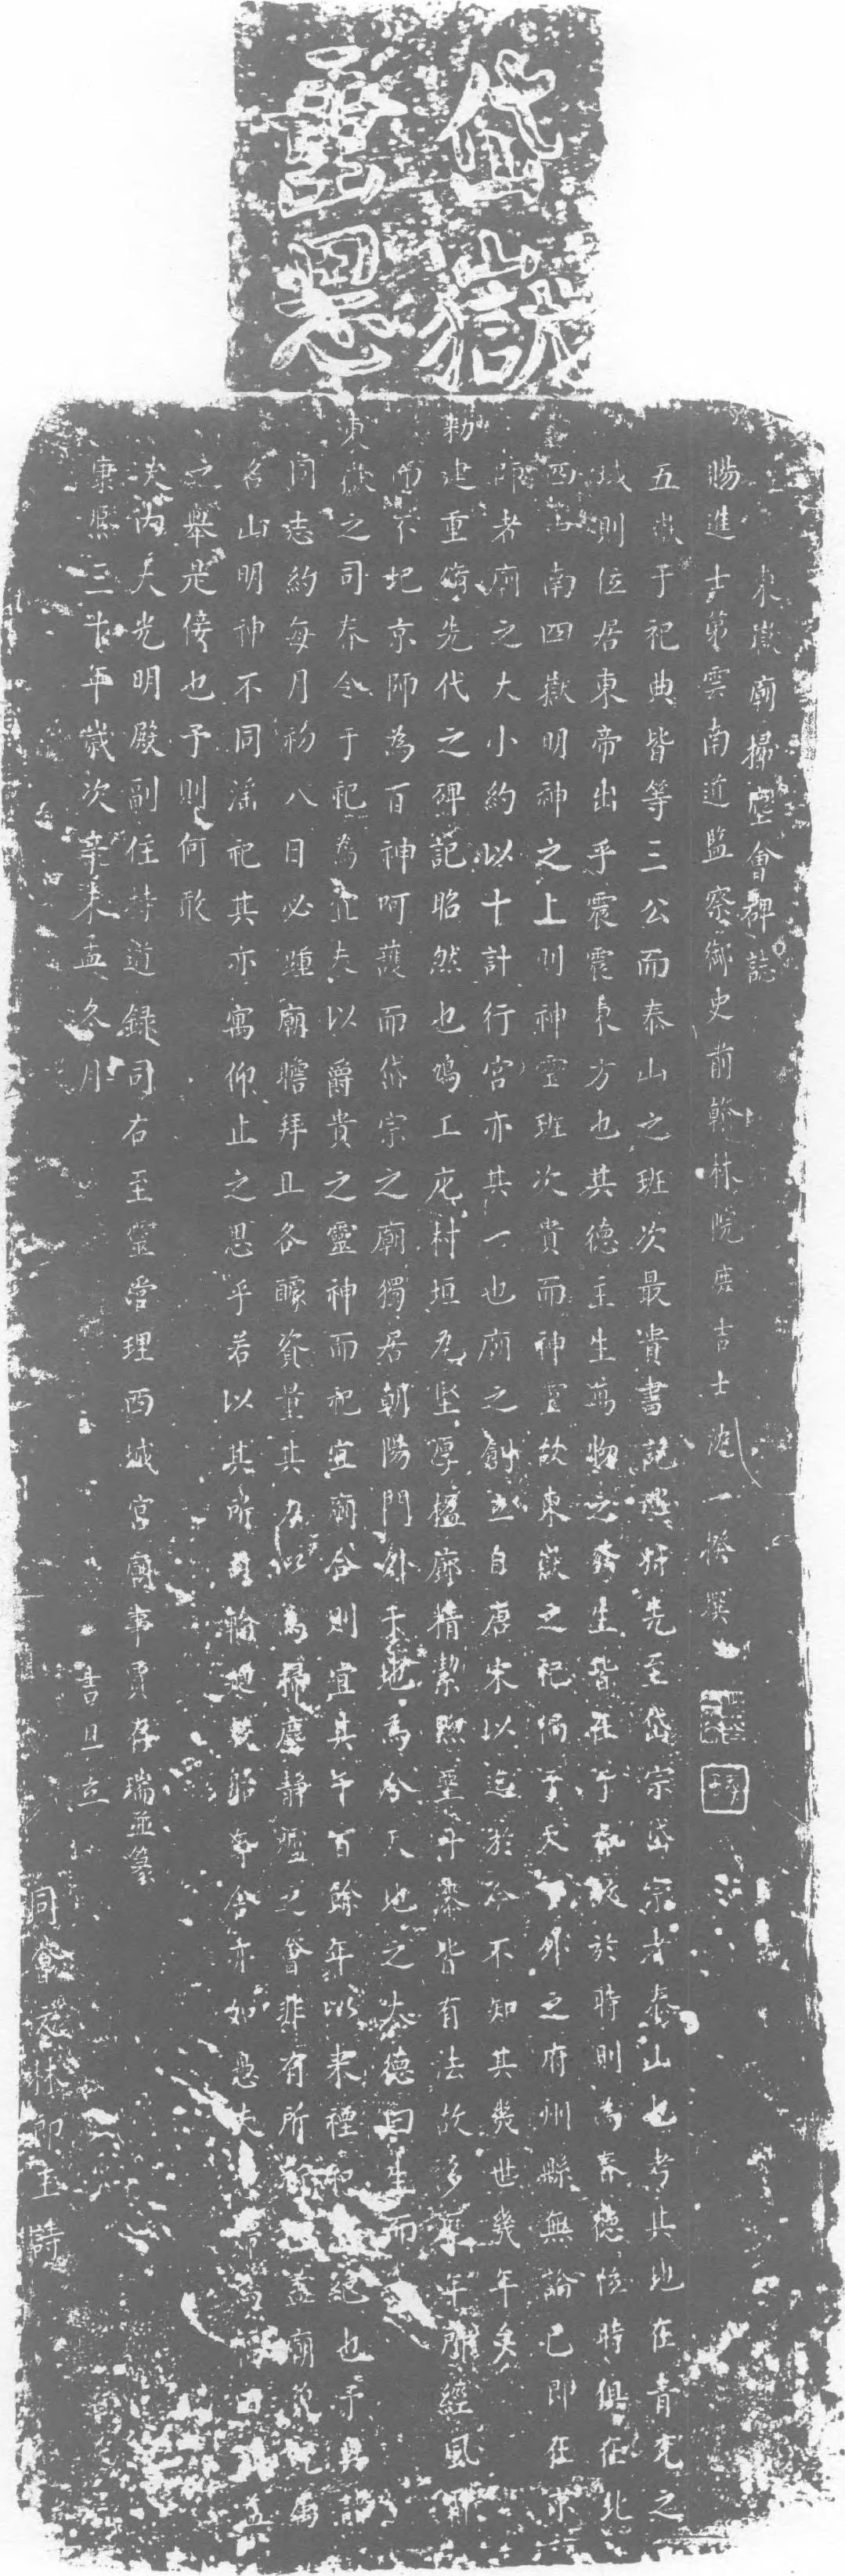 岱嶽
靈恩
東嶽廟掃塵會碑誌
賜進士第雲南道監察御史前翰林院庶吉士沈一揆撰
五嶽于祀典皆等三公而泰山之班次最貴書記巡狩先至岱宗岱宗者泰山也考其地在青兗之
域則位居東帝出乎震震東方也其德主生萬物之發生皆在于於時則為春德位時俱在北
西南四嶽明神之上則神靈班次貴而神靈故東嶽之祀徧于天下外之府州縣無論已即在京
師者廟之大小約以十計行宮亦其一也廟之創立自唐宋以迄於今不知其幾世幾年矣
勅建重脩先代之碑記昭然也鳩工庀材垣危堅厚楹廊精潔黝堊丹漆皆有法故多年經風雨
而不圮京師為百神呵護而岱宗之廟獨居朝陽門外于地為分天地之大德曰生而
東嶽之司春令于祀為正夫以爵貴之靈神而祀宜廟合則宜其年百餘年以来禋祀絕也予與諸
同志約每月初八日必踵廟瞻拜且各醵資量其力以為掃塵静壇之會非有所蓋廟為
名山明神不同滛祀其亦寓仰止之思乎若以其所舍亦如愚夫
之舉是佞也予則何敢
大內大光明殿副住持道錄司右至靈管理西城官廟事賈存瑞並篆
康熙三十年歲次辛未孟冬月吉旦立
同會